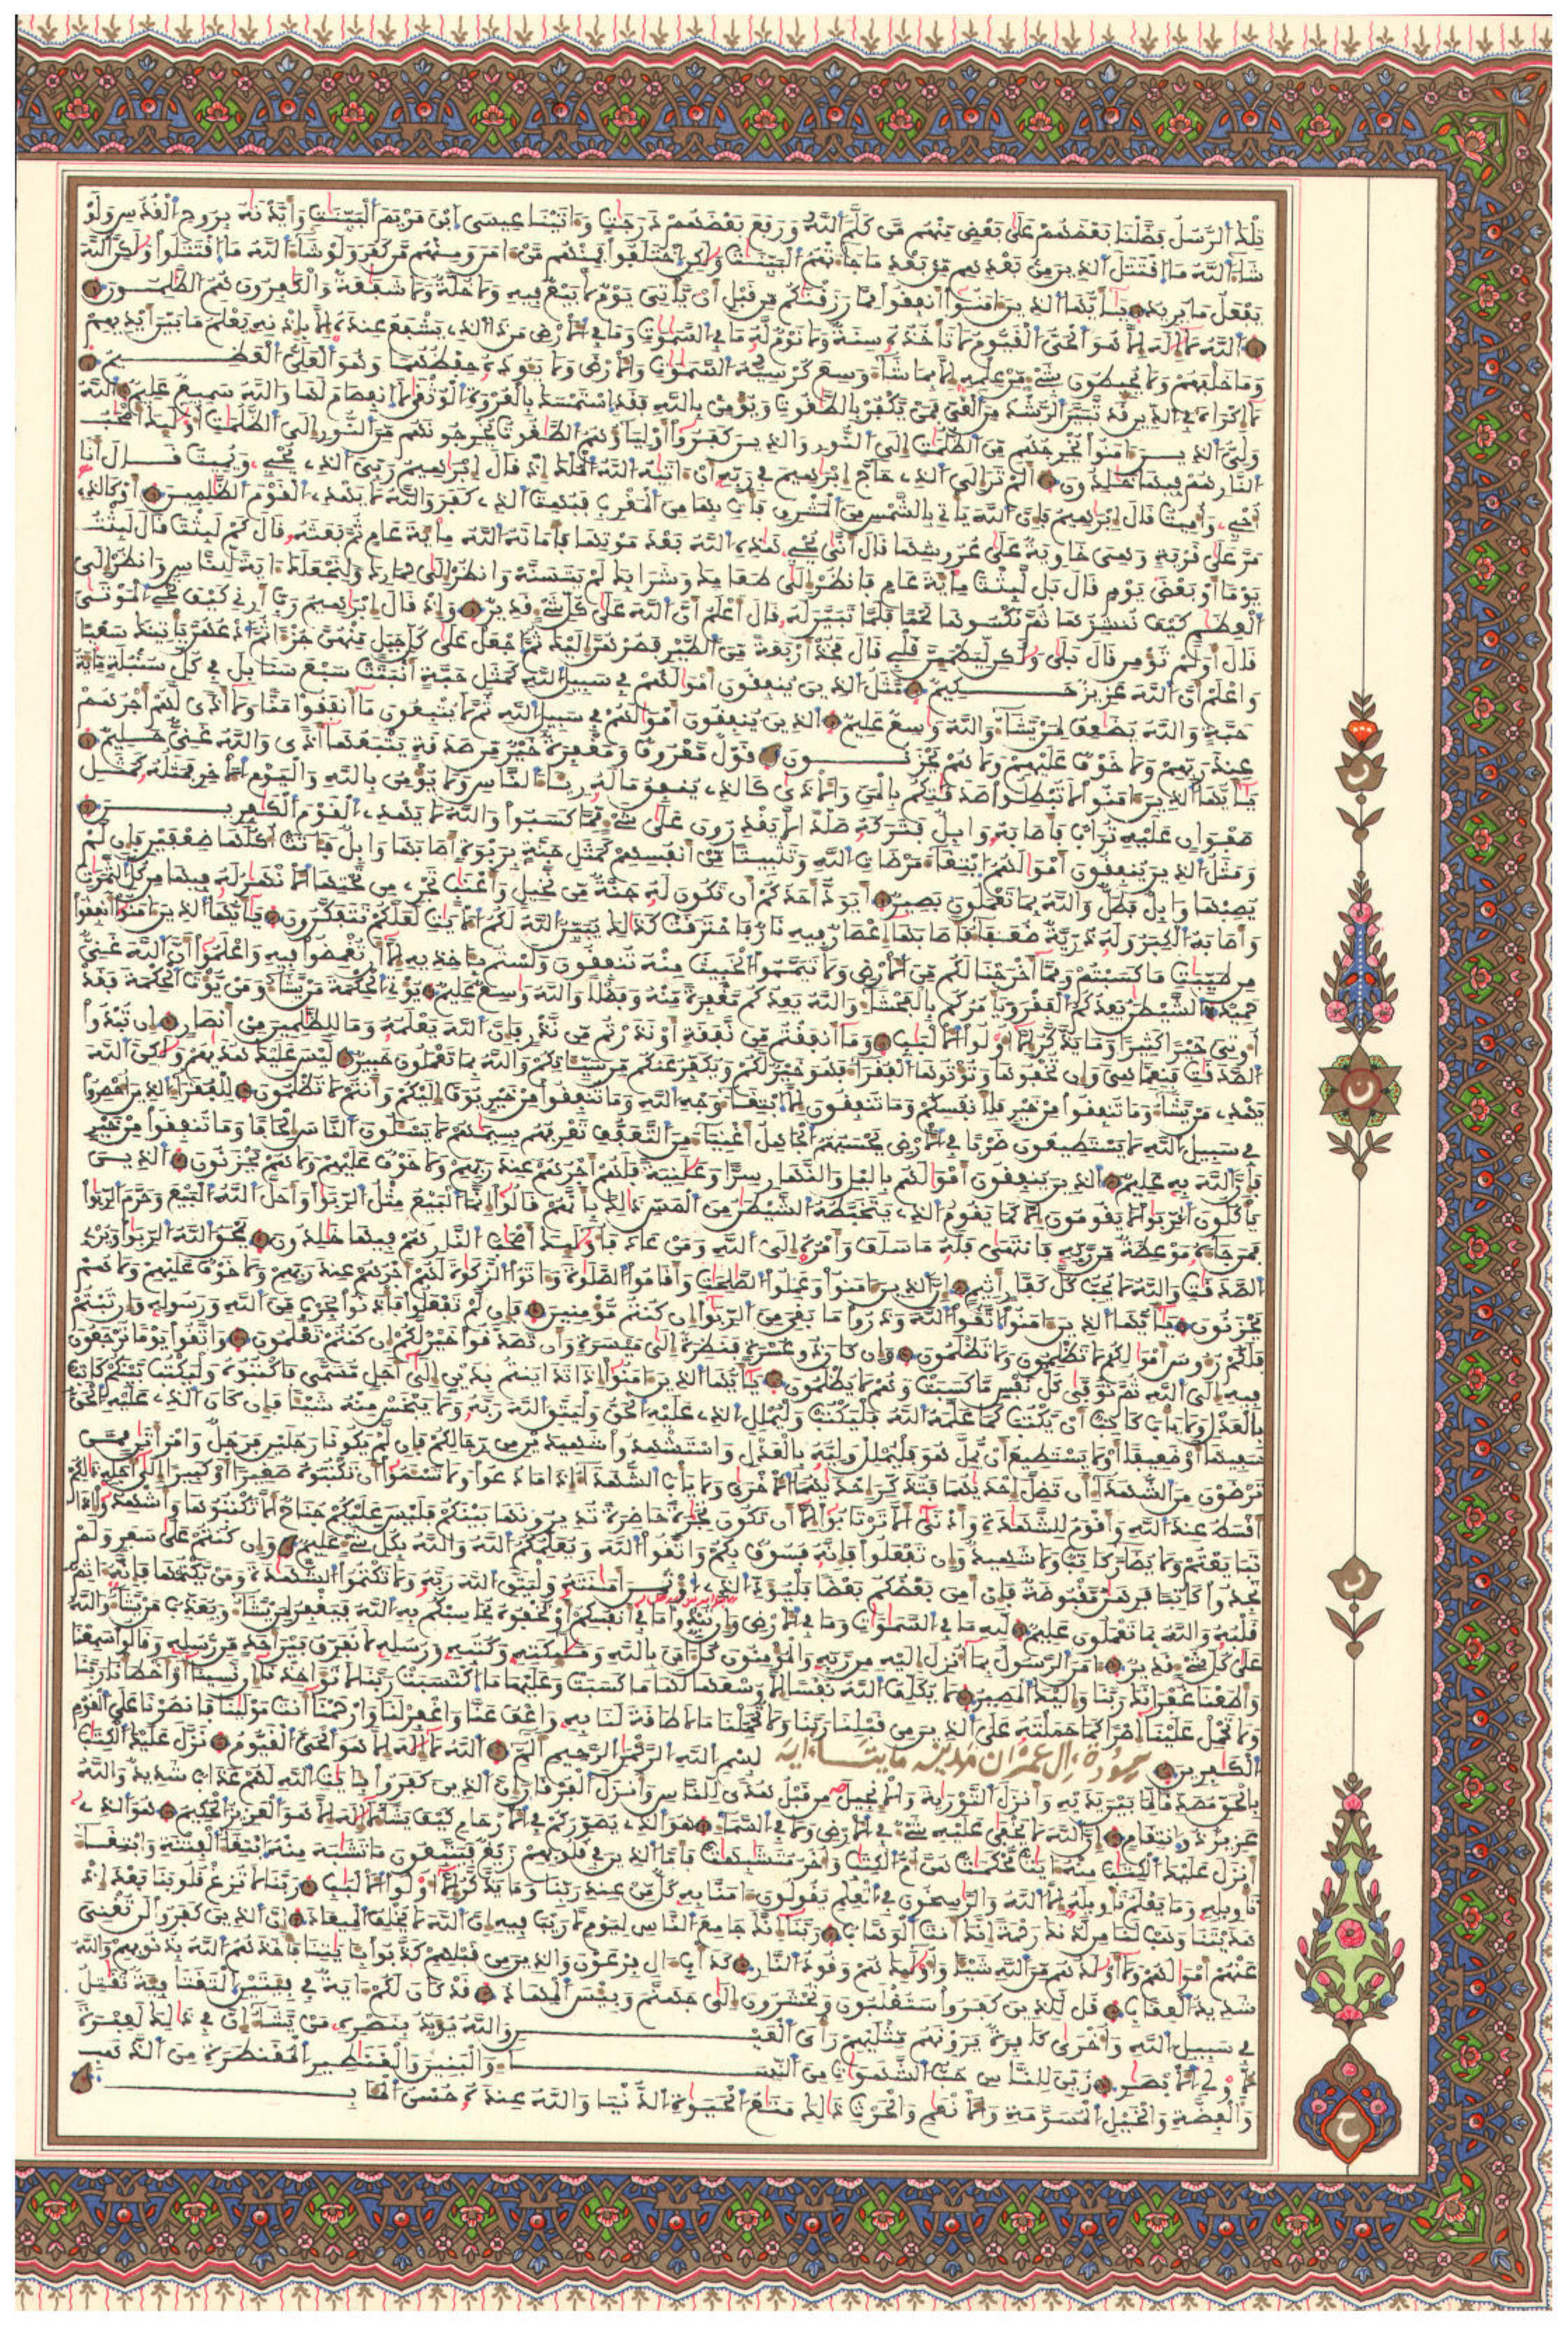 تلك الرسل فضلنا بعضهم على بعض منهم من كلم الله ورفع بعضهم درجت وءاتينا عيسى ابن مريم البينت وأيدنه بروح القدس ولو
شاء الله ما اقتتل الذين من بعدهم من بعد ما جاءتهم البينت ولكن اختلفوا فمنهم من ءامن ومنهم من كفر ولو شاء الله ما اقتتلوا ولكن الله
يفعل ما يريد يأيها الذين ءامنوا أنفقوا مما رزقنكم من قبل أن يأتي يوم لا بيع فيه ولا خلة ولا شفعة والكفرون هم الظلمون
الله لا إله إلا هو الحي القيوم لا تأخذه سنة ولا نوم له ما في السموت وما في الأرض من ذا الذي يشفع عنده إلا بإذنه يعلم ما بين أيديهم
وما خلفهم ولا يحيطون بشيء من علمه إلا بما شاء وسع كرسيه السموت والأرض ولا يئوده حفظهما وهو العلي العظيم
لا إكراه في الدين قد تبين الرشد من الغي فمن يكفر بالطغوت ويؤمن بالله فقد استمسك بالعروة الوثقى لا انفصام لها والله سميع عليم الله
ولي الذين ءامنوا يخرجهم من الظلمت إلى النور والذين كفروا أولياؤهم الطغوت يخرجونهم من النور إلى الظلمت أولئك أصحب
النار هم فيها خلدون ألم تر إلى الذي حاج إبرهيم في ربه أن ءاتيه الله الملك إذ قال إبرهيم ربي الذي يحيي ويميت قال أنا
أحيي وأميت قال إبرهيم فإن الله يأتي بالشمس من المشرق فأت بها من المغرب فبهت الذي كفر والله لا يهدي القوم الظلمين أو كالذي
مر على قرية وهي خاوية على عروشها قال أنى يحيي هذه الله بعد موتها فأماته الله مائة عام ثم بعثه قال كم لبثت قال لبثت
يوما أو بعض يوم قال بل لبثت مائة عام فانظر إلى طعامك وشرابك لم يتسنه وانظر إلى حمارك ولنجعلك ءاية للناس وانظر إلى
العظام كيف ننشرها ثم نكسوها لحما فلما تبين له قال أعلم أن الله على كل شيء قدير وإذ قال إبرهيم رب أرني كيف تحيي الموتى
قال أولم تؤمن قال بلى ولكن ليطمئن قلبي قال فخذ أربعة من الطير فصرهن إليك ثم اجعل على كل جبل منهن جزءا ثم ادعهن يأتينك سعيا
واعلم أن الله عزيز حكيم مثل الذين ينفقون أموالهم في سبيل الله كمثل حبة أنبتت سبع سنابل في كل سنبلة مائة
حبة والله يضعف لمن يشاء والله وسع عليم الذين ينفقون أموالهم في سبيل الله ثم لا يتبعون ما أنفقوا منا ولا أذى لهم أجرهم
عند ربهم ولا خوف عليهم ولا هم يحزنون قول معروف ومغفرة خير من صدقة يتبعها أذى والله غني حليم
يأيها الذين ءامنوا لا تبطلوا صدقتكم بالمن والأذى كالذي ينفق ماله رئاء الناس ولا يؤمن بالله واليوم الأخر فمثله كمثل
صفوان عليه تراب فأصابه وابل فتركه صلدا لا يقدرون على شيء مما كسبوا والله لا يهدي القوم الكفرين
ومثل الذين ينفقون أموالهم ابتغاء مرضات الله وتثبيتا من أنفسهم كمثل جنة بربوة أصابها وابل فئاتت أكلها ضعفين فإن لم
يصبها وابل فطل والله بما تعملون بصير أيود أحدكم أن تكون له جنة من نخيل وأعناب تجري من تحتها الأنهر له فيها من كل الثمرت
وأصابه الكبر وله ذرية ضعفاء فأصابها إعصار فيه نار فاحترقت كذلك يبين الله لكم الأيت لعلكم تتفكرون يأيها الذين ءامنوا أنفقوا
من طيبت ما كسبتم ومما أخرجنا لكم من الأرض ولا تيمموا الخبيث منه تنفقون ولستم بئاخذيه إلا أن تغمضوا فيه واعلموا أن الله غني
حميد الشيطن يعدكم الفقر ويأمركم بالفحشاء والله يعدكم مغفرة منه وفضلا والله وسع عليم يؤتي الحكمة من يشاء ومن يؤت الحكمة فقد
أوتي خيرا كثيرا وما يذكر إلا أولوا الألبب وما أنفقتم من نفقة أو نذرتم من نذر فإن الله يعلمه وما للظلمين من أنصار إن تبدوا
الصدقت فنعما هي وإن تخفوها وتؤتوها الفقراء فهو خير لكم ويكفر عنكم من سيئاتكم والله بما تعملون خبير ليس عليك هديهم ولكن الله
يهدي من يشاء وما تنفقوا من خير فلأنفسكم وما تنفقون إلا ابتغاء وجه الله وما تنفقوا من خير يوف إليكم وأنتم لا تظلمون للفقراء الذين أحصروا
في سبيل الله لا يستطيعون ضربا في الأرض يحسبهم الجاهل أغنياء من التعفف تعرفهم بسيمهم لا يسئلون الناس إلحافا وما تنفقوا من خير
فإن الله به عليم الذين ينفقون أموالهم باليل والنهار سرا وعلنية فلهم أجرهم عند ربهم ولا خوف عليهم ولا هم يحزنون الذين
يأكلون الربوا لا يقومون إلا كما يقوم الذي يتخبطه الشيطن من المس ذلك بأنهم قالوا إنما البيع مثل الربوا وأحل الله البيع وحرم الربوا
فمن جاءه موعظة من ربه فانتهى فله ما سلف وأمره إلى الله ومن عاد فأولئك أصحب النار هم فيها خلدون يمحق الله الربوا ويربي
الصدقت والله لا يحب كل كفار أثيم إن الذين ءامنوا وعملوا الصلحت وأقاموا الصلوة وءاتوا الزكوة لهم أجرهم عند ربهم ولا خوف عليهم ولا هم
يحزنون يأيها الذين ءامنوا اتقوا الله وذروا ما بقي من الربوا إن كنتم مؤمنين فإن لم تفعلوا فأذنوا بحرب من الله ورسوله وإن تبتم
فلكم رءوس أموالكم لا تظلمون ولا تظلمون وإن كان ذو عسرة فنظرة إلى ميسرة وأن تصدقوا خير لكم إن كنتم تعلمون واتقوا يوما ترجعون
فيه إلى الله ثم توفى كل نفس ما كسبت وهم لا يظلمون يأيها الذين ءامنوا إذا تداينتم بدين إلى أجل مسمى فاكتبوه وليكتب بينكم كاتب
بالعدل ولا يأب كاتب أن يكتب كما علمه الله فليكتب وليملل الذي عليه الحق وليتق الله ربه ولا يبخس منه شيئا فإن كان الذي عليه الحق
سفيها أو ضعيفا أو لا يستطيع أن يمل هو فليملل وليه بالعدل واستشهدوا شهيدين من رجالكم فإن لم يكونا رجلين فرجل وامرأتن ممن
ترضون من الشهداء أن تضل إحديهما فتذكر إحديهما الأخرى ولا يأب الشهداء إذا ما دعوا ولا تسئموا أن تكتبوه صغيرا أو كبيرا إلى أجله ذلكم
أقسط عند الله وأقوم للشهدة وأدنى ألا ترتابوا إلا أن تكون تجرة حاضرة تديرونها بينكم فليس عليكم جناح ألا تكتبوها وأشهدوا إذا
تبايعتم ولا يضار كاتب ولا شهيد وإن تفعلوا فإنه فسوق بكم واتقوا الله ويعلمكم الله والله بكل شيء عليم وإن كنتم على سفر ولم
تجدوا كاتبا فرهن مقبوضة فإن أمن بعضكم بعضا فليؤد الذي اؤتمن أمنته وليتق الله ربه ولا تكتموا الشهدة ومن يكتمها فإنه ءاثم
قلبه والله بما تعملون عليم لله ما في السموت وما في الأرض وإن تبدوا ما في أنفسكم أو تخفوه يحاسبكم به الله فيغفر لمن يشاء ويعذب من يشاء والله
على كل شيء قدير ءامن الرسول بما أنزل إليه من ربه والمؤمنون كل ءامن بالله وملئكته وكتبه ورسله لا نفرق بين أحد من رسله وقالوا سمعنا
وأطعنا غفرانك ربنا وإليك المصير لا يكلف الله نفسا إلا وسعها لها ما كسبت وعليها ما اكتسبت ربنا لا تؤاخذنا إن نسينا أو أخطأنا ربنا
ولا تحمل علينا إصرا كما حملته على الذين من قبلنا ربنا ولا تحملنا ما لا طاقة لنا به واعف عنا واغفر لنا وارحمنا أنت مولينا فانصرنا على القوم
الكفرين سورة ءال عمران مدنية مايتا ءاية بسم الله الرحمن الرحيم ألم الله لا إله إلا هو الحي القيوم نزل عليك الكتب
بالحق مصدقا لما بين يديه وأنزل التورية والإنجيل من قبل هدى للناس وأنزل الفرقان إن الذين كفروا بئايت الله لهم عذاب شديد والله
عزيز ذو انتقام إن الله لا يخفى عليه شيء في الأرض ولا في السماء هو الذي يصوركم في الأرحام كيف يشاء لا إله إلا هو العزيز الحكيم هو الذي
أنزل عليك الكتب منه ءايت محكمت هن أم الكتب وأخر متشبهت فأما الذين في قلوبهم زيغ فيتبعون ما تشبه منه ابتغاء الفتنة وابتغاء
تأويله وما يعلم تأويله إلا الله والرسخون في العلم يقولون ءامنا به كل من عند ربنا وما يذكر إلا أولوا الألبب ربنا لا تزغ قلوبنا بعد إذ
هديتنا وهب لنا من لدنك رحمة إنك أنت الوهاب ربنا إنك جامع الناس ليوم لا ريب فيه إن الله لا يخلف الميعاد إن الذين كفروا لن تغني
عنهم أموالهم ولا أولدهم من الله شيئا وأولئك هم وقود النار كدأب ءال فرعون والذين من قبلهم كذبوا بئايتنا فأخذهم الله بذنوبهم والله
شديد العقاب قل للذين كفروا ستغلبون وتحشرون إلى جهنم وبيس المهاد قد كان لكم ءاية في فئتين التقتا فئة تقتل
في سبيل الله وأخرى كافرة يرونهم مثليهم رأي العين والله يؤيد بنصره من يشاء إن في ذلك لعبرة
لأولي الأبصر زين للناس حب الشهوت من النساء والبنين والقنطير المقنطرة من الذهب
والفضة والخيل المسومة والأنعم والحرث ذلك متع الحيوة الدنيا والله عنده حسن المئاب
ن
ن
ن
ح